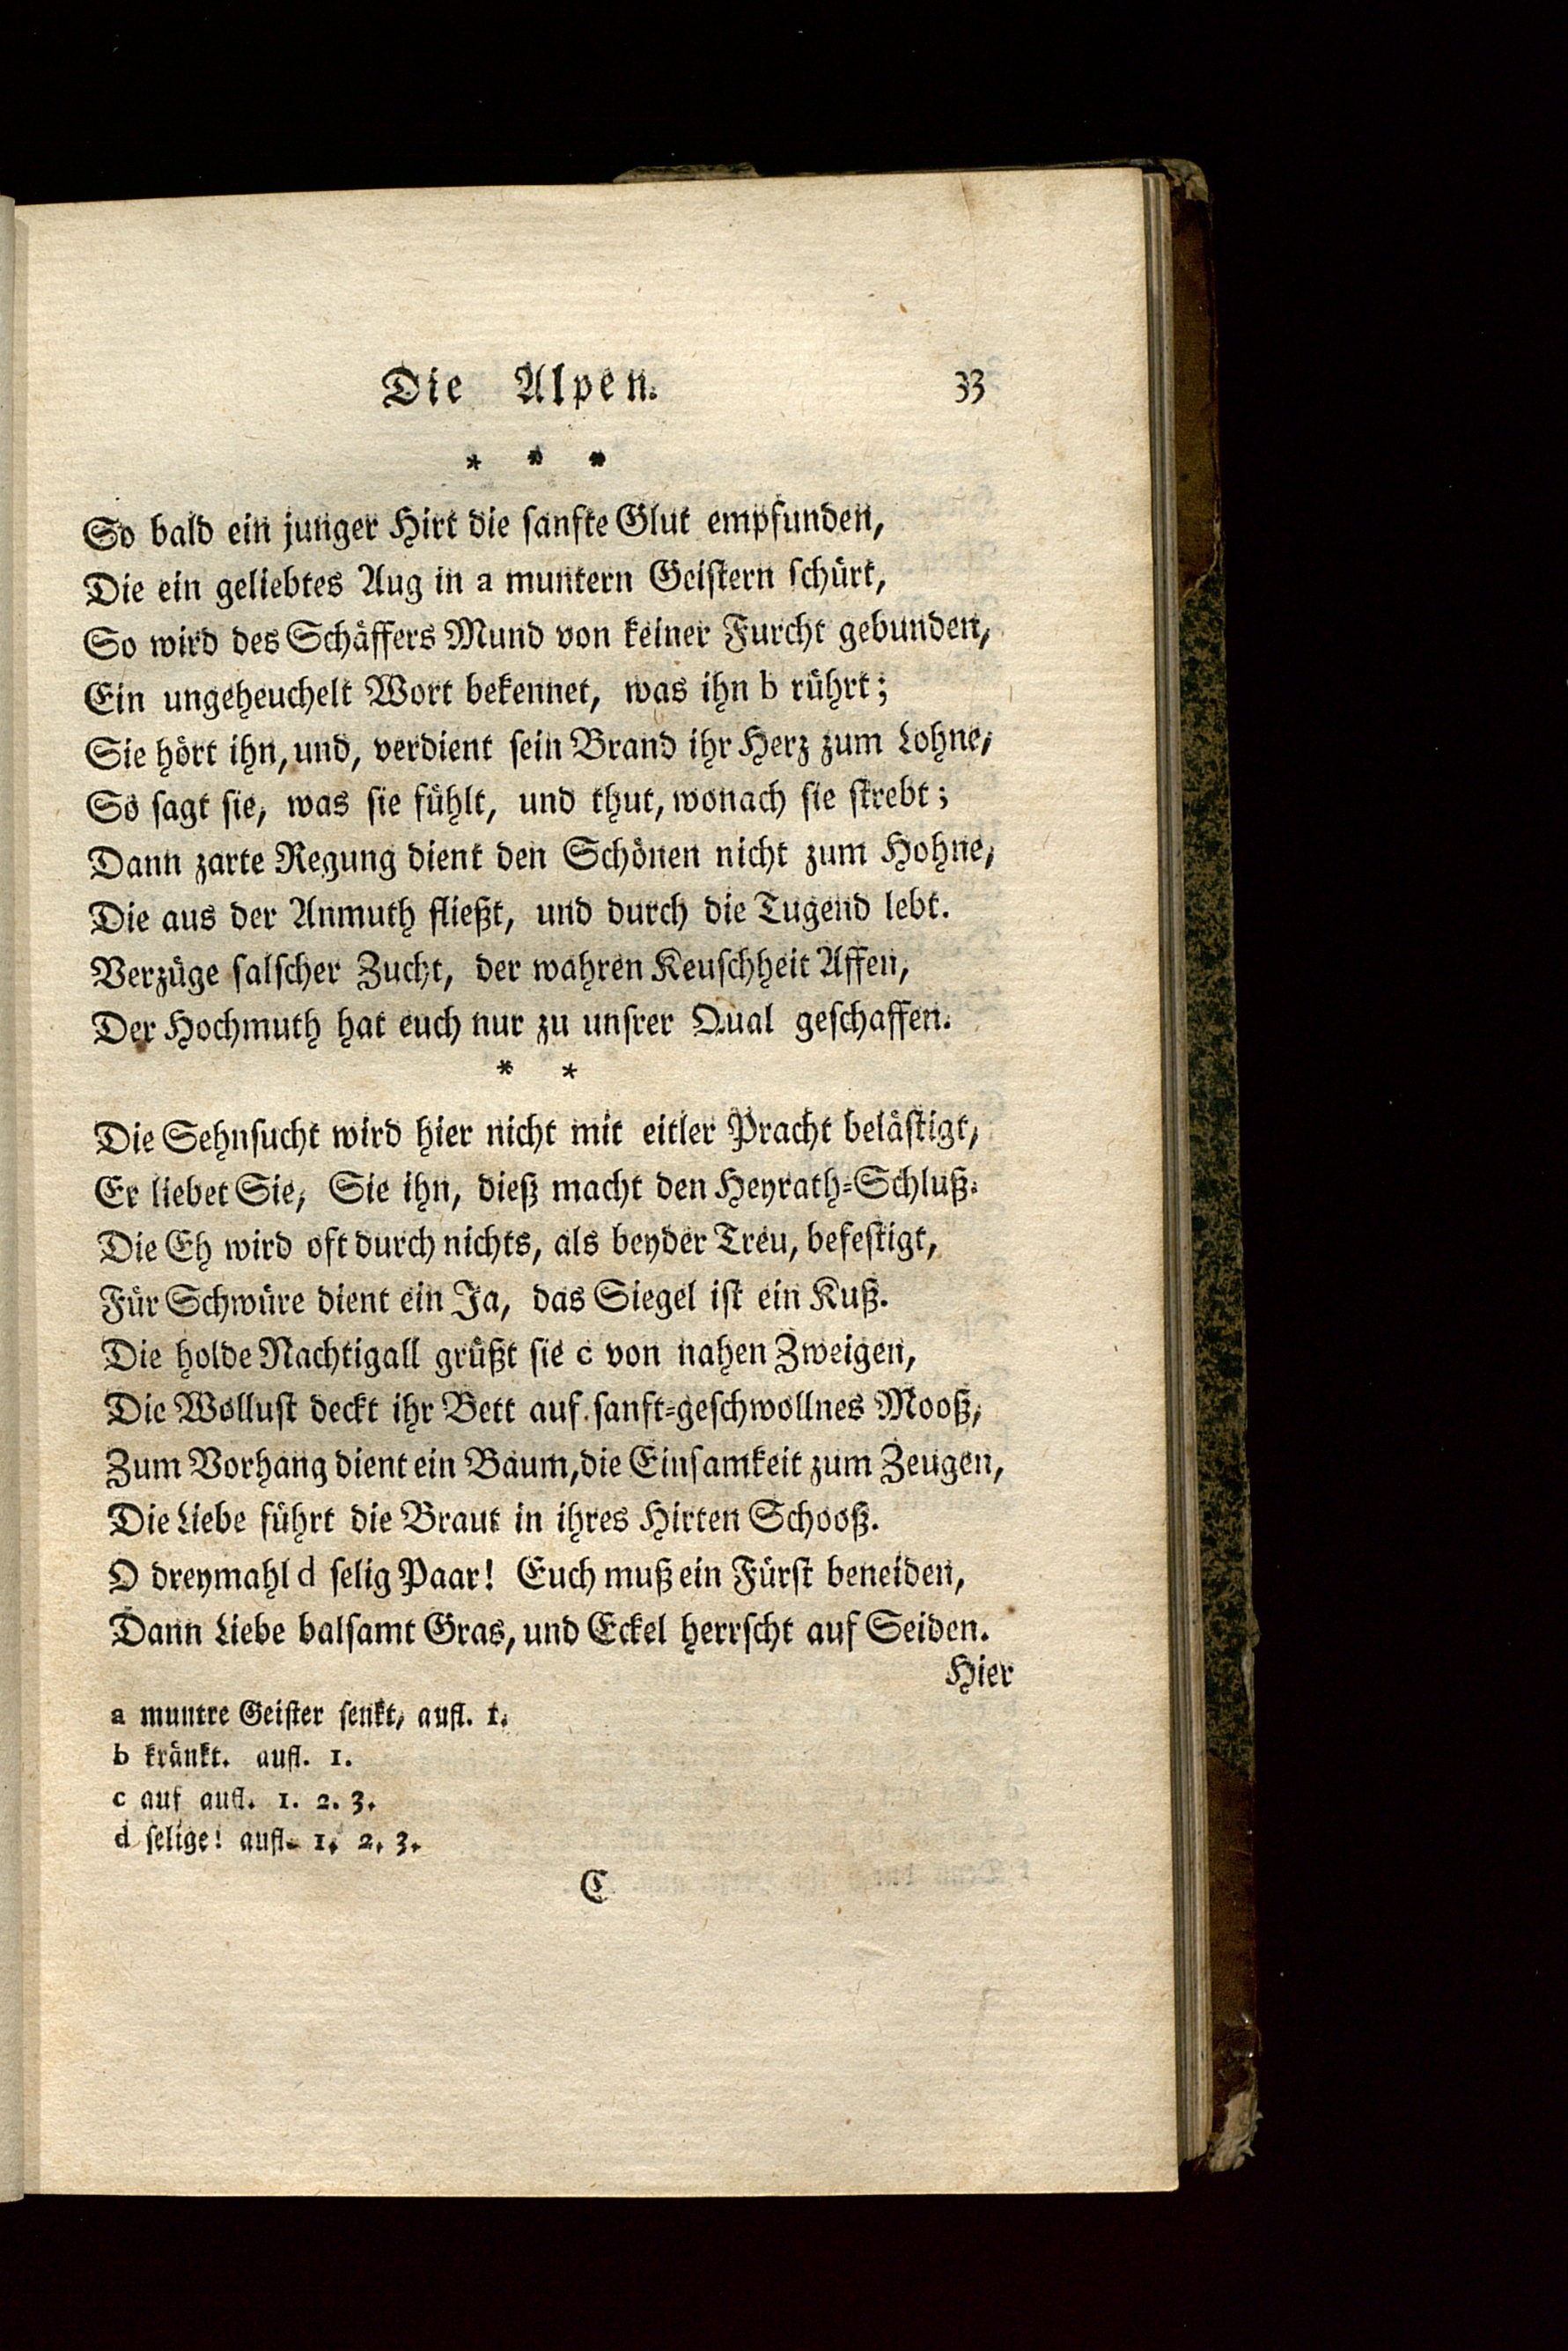 Die Alpen. 33
* * *
So bald ein junger Hirt die sanfte Glut empfunden,
Die ein geliebtes Aug in a muntern Geistern schürt,
So wird des Schäffers Mund von keiner Furcht gebunden,
Ein ungeheuchelt Wort bekennet, was ihn b rührt;
Sie hört ihn, und, verdient sein Brand ihr Herz zum Lohne,
So sagt sie, was sie fühlt, und thut, wonach sie strebt;
Dann zarte Regung dient den Schönen nicht zum Hohne,
Die aus der Anmuth fließt, und durch die Tugend lebt.
Verzüge falscher Zucht, der wahren Keuschheit Affen,
Der Hochmuth hat euch nur zu unsrer Qual geschaffen.
* *
Die Sehnsucht wird hier nicht mit eitler Pracht belästigt,
Er liebet Sie, Sie ihn, dieß macht den Heyrath=Schluß.
Die Eh wird oft durch nichts, als beyder Treu, befestigt,
Für Schwüre dient ein Ja, das Siegel ist ein Kuß.
Die holde Nachtigall grüßt sie c von nahen Zweigen,
Die Wollust deckt ihr Bett auf sanft=geschwollnes Mooß,
Zum Vorhang dient ein Baum, die Einsamkeit zum Zeugen,
Die Liebe führt die Braut in ihres Hirten Schooß.
O dreymahl d selig Paar! Euch muß ein Fürst beneiden,
Dann Liebe balsamt Gras, und Eckel herrscht auf Seiden.
Hier
a muntre Geister senkt, aufl. 1.
b kränkt. aufl. 1.
c auf aufl. 1. 2. 3.
d selige! aufl. 1. 2. 3.
C